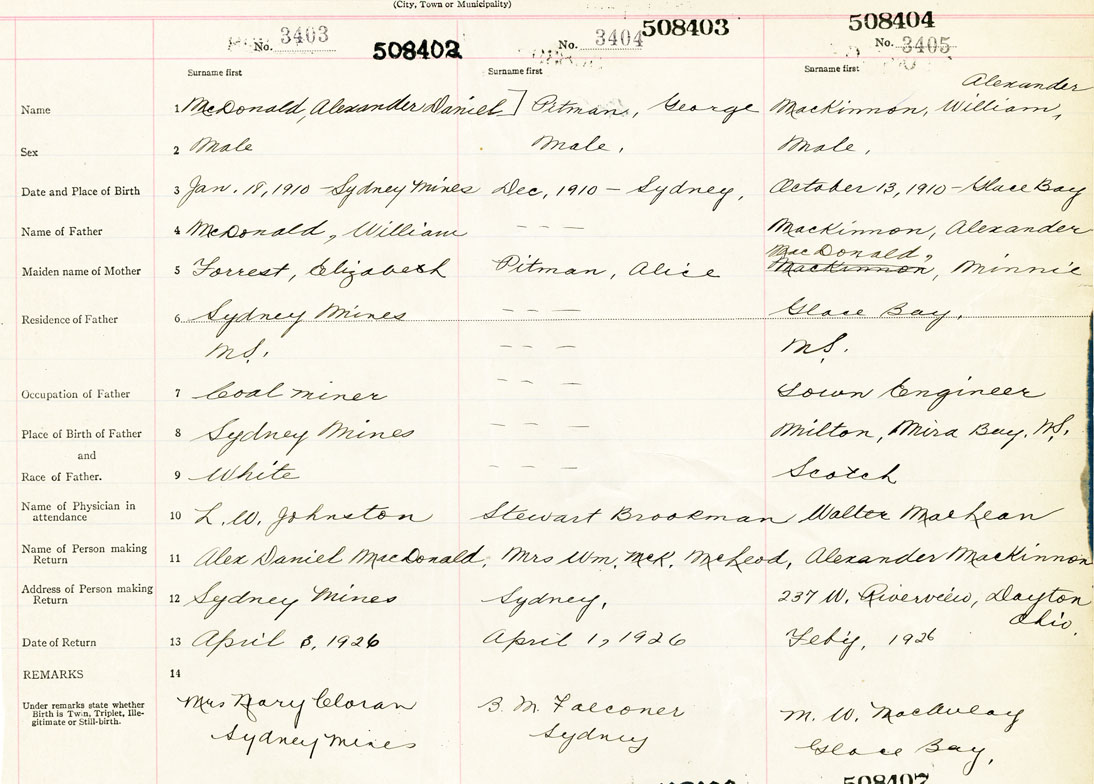 (City, Town or Municipality)
No. 3403 508402 No. 3404 508403 508404 No. 3405
Surname first Surname first Surname first
Alexander
Name 1 McDonald, Alexander Daniel] Pitman, George MacKinnon, William,
Sex 2 Male Male, Male,
Date and Place of Birth 3 Jan. 18, 1910 - Sydney Mines Dec, 1910 - Sydney, October 13, 1910 - Glace Bay
Name of Father 4 McDonald, William - - - MacKinnon, Alexander
MacDonald,
Maiden name of Mother 5 Forrest, Elizabeth Pitman, Alice MacKinnon, Minnie
Residence of Father 6 Sydney Mines - - - Glace Bay,
N.S. - - - N.S.
Occupation of Father 7 Coal miner - - - Town Engineer
Place of Birth of Father 8 Sydney Mines - - - Milton, Mira Bay, N.S.
and
Race of Father. 9 White - - - Scotch
Name of Physician in attendance 10 L. W. Johnston Stewart Brookman Walter MacLean
Name of Person making Return 11 Alex Daniel MacDonald, Mrs Wm, McK. McLeod, Alexander MacKinnon
Address of Person making Return 12 Sydney Mines Sydney, 237 W. Riverview, Dayton
Ohio,
Date of Return 13 April 8, 1926 April 1, 1926 Feb'y, 1926
REMARKS 14
Under remarks state whether Birth is Twin, Triplet, Ille-gitimate or Still-birth. Mrs Mary Cloran B. M. Falconer M. W. MacAulay
Sydney Mines Sydney Glace Bay,
508407